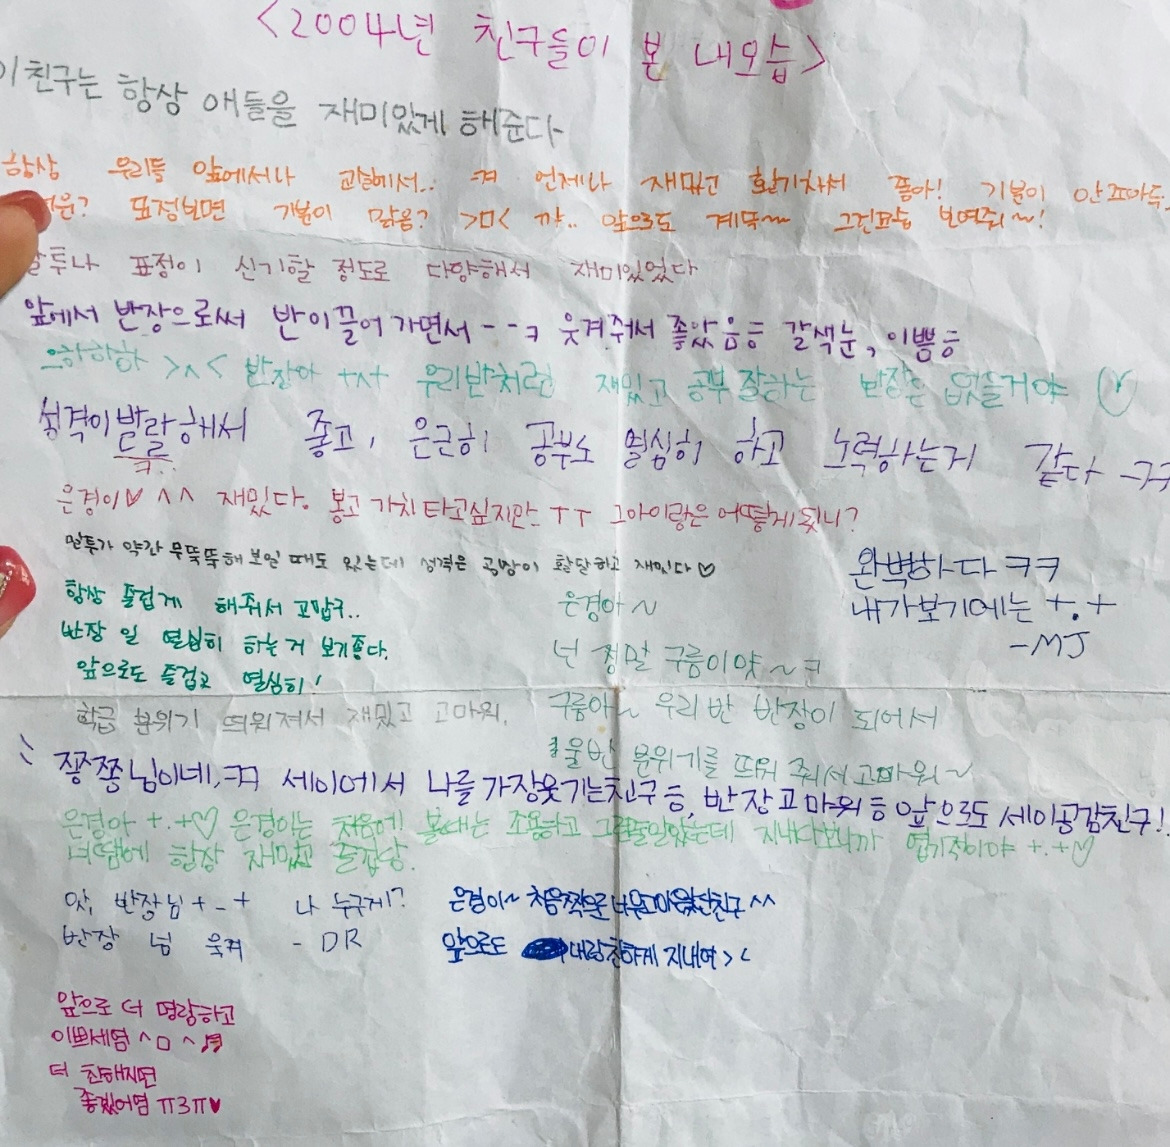 <2004년 친구들이 본 내모습>
이 친구는 항상 애들을 재미있게 해준다
항상 우리들 앞에서나 교실에서.. ㅋㅋ 언제나 재밌고 활기차서 좋아! 기분이 안조아두
표정보면 기분이 맑음? >ㅁ< 꺄.. 앞으로도 계속~ 그런모습 보여줘~!
말투나 표정이 신기할 정도로 다양해서 재미있었다
앞에서 반장으로써 반 이끌어 가면서 --ㅋ 웃겨줘서 좋았음ㅎ 갈색눈, 이쁨ㅎ
으하하하 >ㅅ< 반장아 +ㅅ+ 우리반처럼 재밌고 공부 잘하는 반장은 없을거야 ♡
성격이 발랄해서 좋고, 은근히 공부도 열심히 하고 노력하는거 같다 -ㄱㄱ
은경이♡ ^^ 재밌다. 봉고 가치 타고싶지만 ㅜㅜ 그아이랑은 어떻게 됬니?
말투가 약간 무뚝뚝해 보일 때도 있는데 성격은 굉장히 활달하고 재밌다 ♡
완벽하다 ㅋㅋ
내가보기에는 +.+
-MJ
항상 즐겁게 해줘서 고맙구..
반장 일 열심히 하는거 보기좋다.
앞으로도 즐겁고 열심히!
은경아~
넌 정말 구름이얏~ㅋ
구름아~ 우리반 반장이 되어서
울반 분위기를 띄워 줘서 고마워~
학급 분위기 띄워져서 재밌고 고마워.
쯍쯍님이네, ㅋㅋ 세이에서 나를 가장웃기는친구ㅎ, 반장고마워ㅎ 앞으로도 세이공감친구!
은경아 +.+♡ 은경이는 처음에 볼때는 조용하고 그런줄알았는데 지내다보니까 엽기적이야 +.+♡
너땜에 항상 재밌고 즐겁당.
앗, 반장님 +_+ 나 누구게?
반장 넘 웃겨 - DR
은경이~ 첨음짝으로 너무고마웠던친구^^
앞으로도 나랑친하게 지내여><
앞으로 더 명랑하고
이쁘세염 ^ㅁ^♬
더 친해지면
좋겠어염 π3π♥